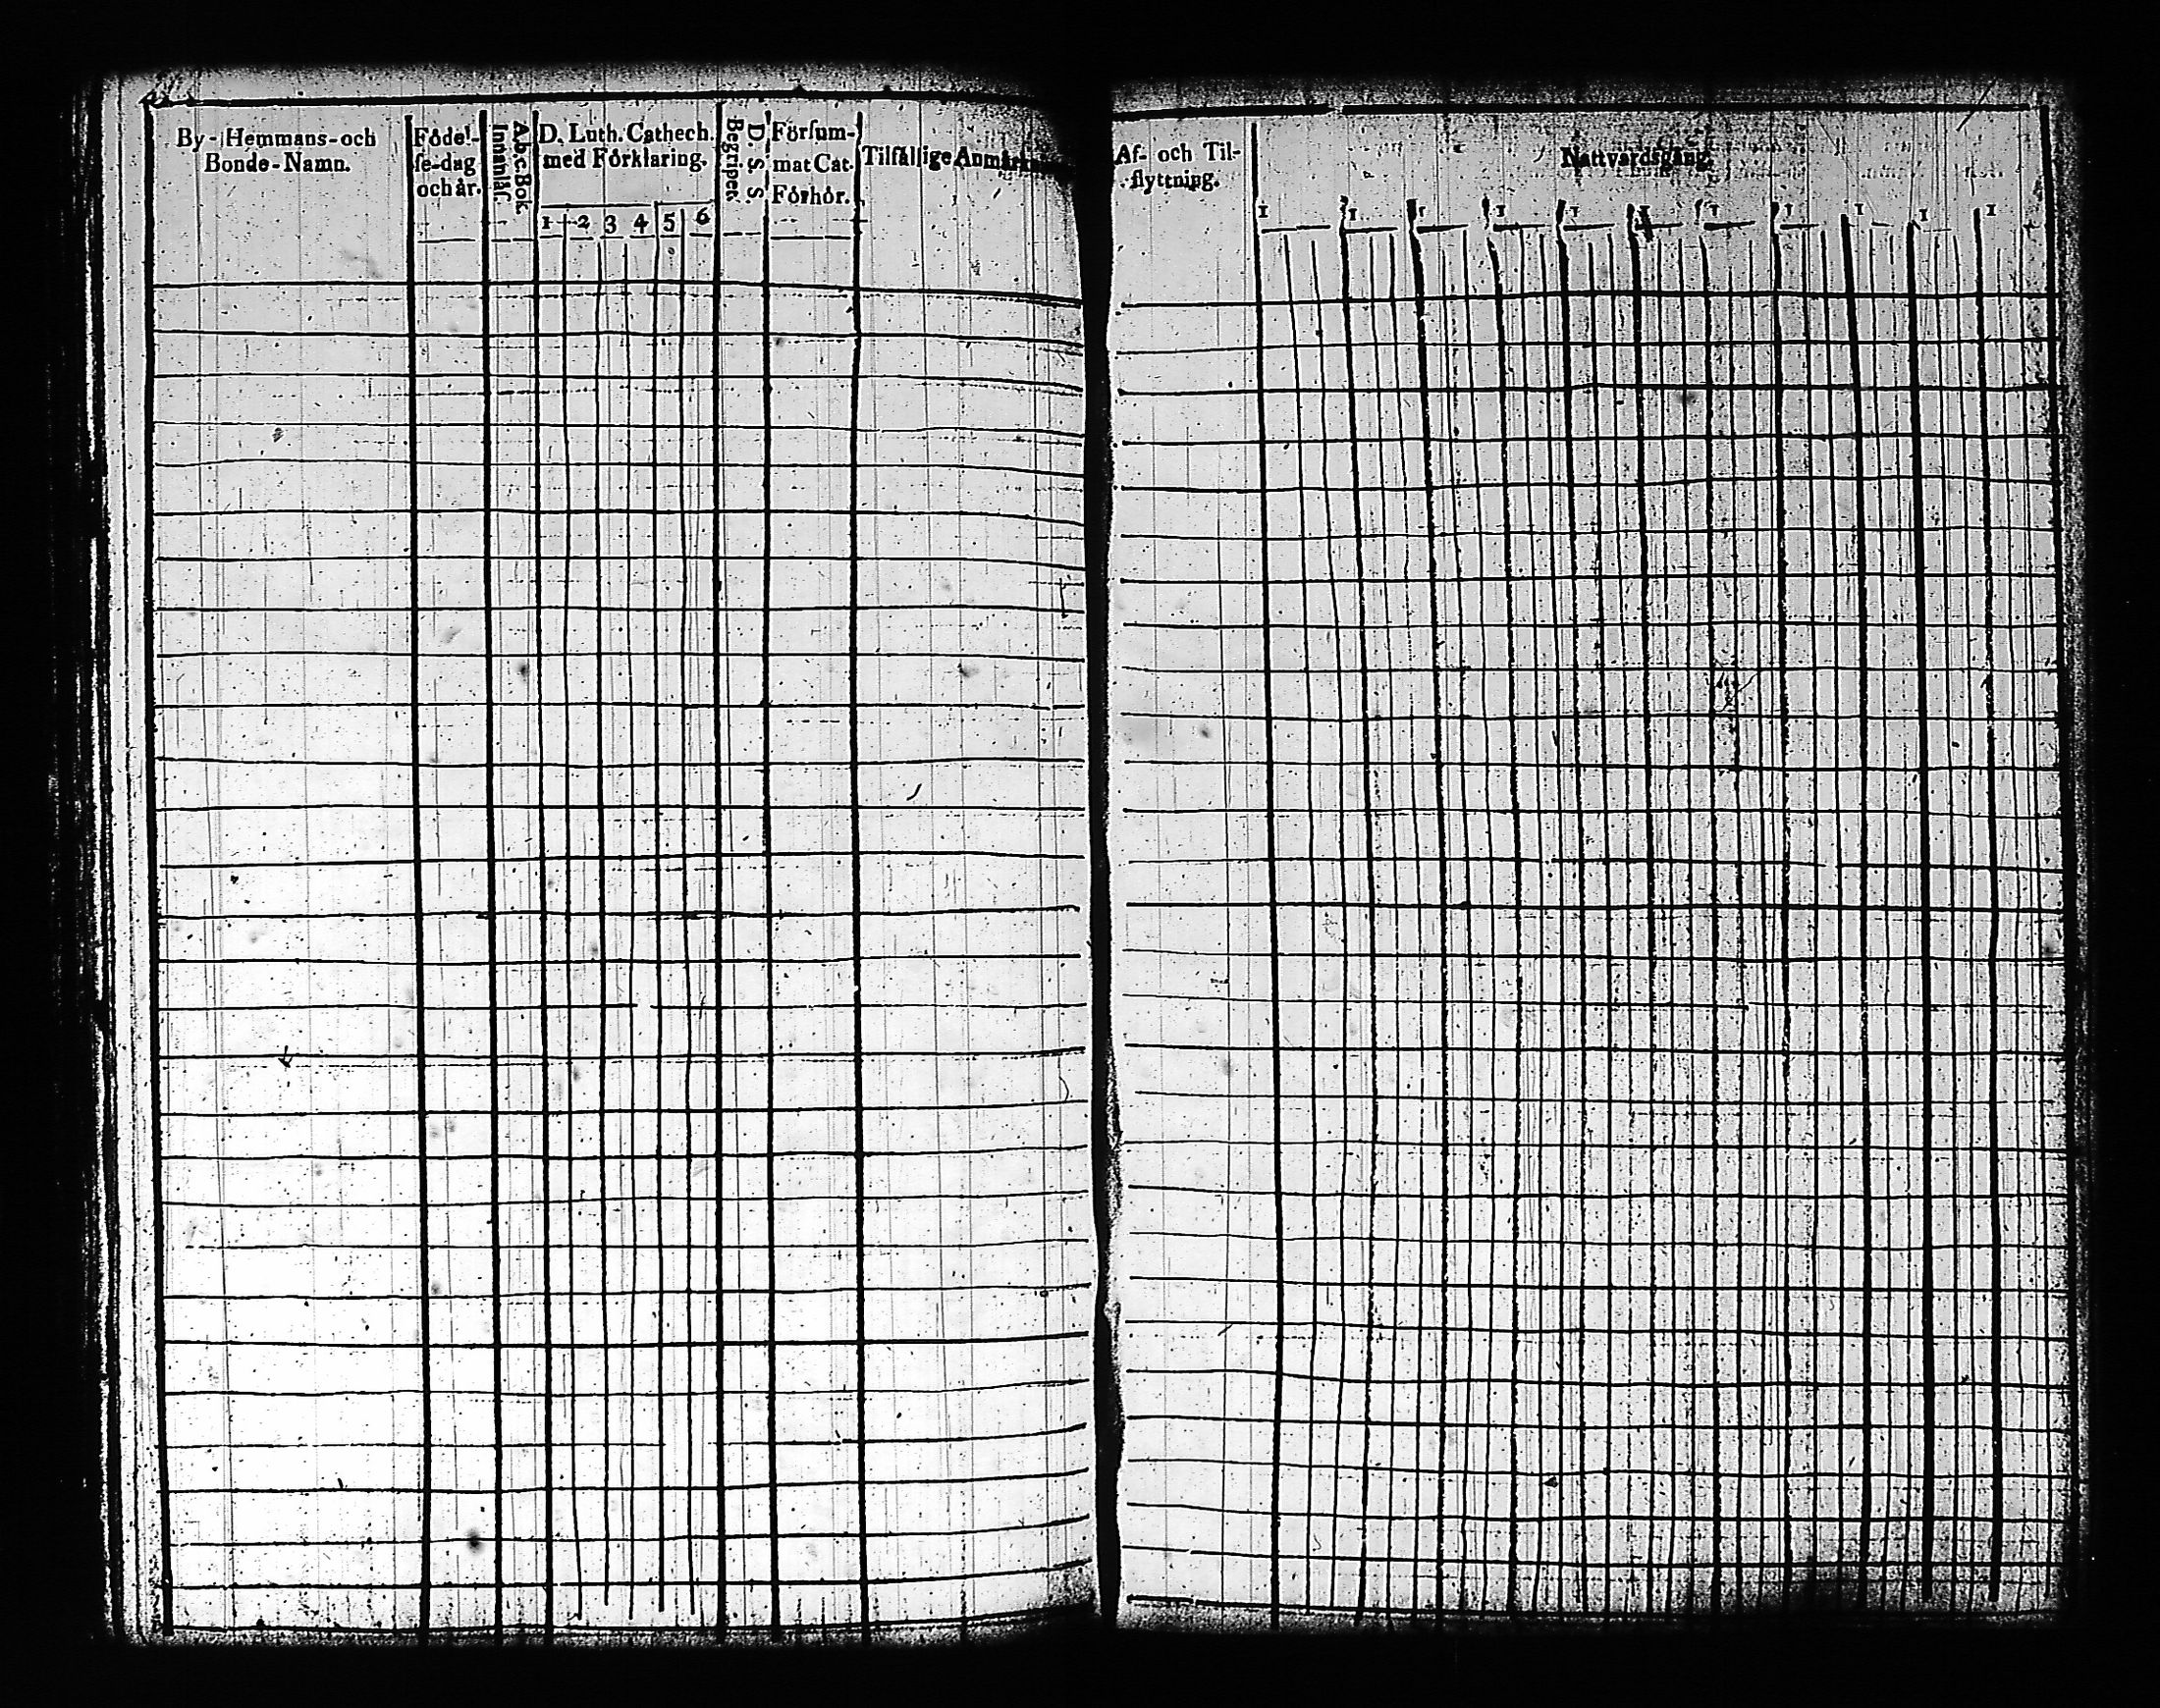 By- Hemmans- och
Bonde-Namn.
Födel-
se-dag
och år.
Ab.c.Bok.
Innanläs.
D. Luth. Cathech.
med Förklaring.
1 2 3 4 5 6
D. S. S.
Begripet.
Försum-
mat Cat.
Förhör.
Tilfällige Anmärk
Af- och Til-
flyttning.
Nattvardsgång.
1 1 1 1 1 1 1 1 1 1 1